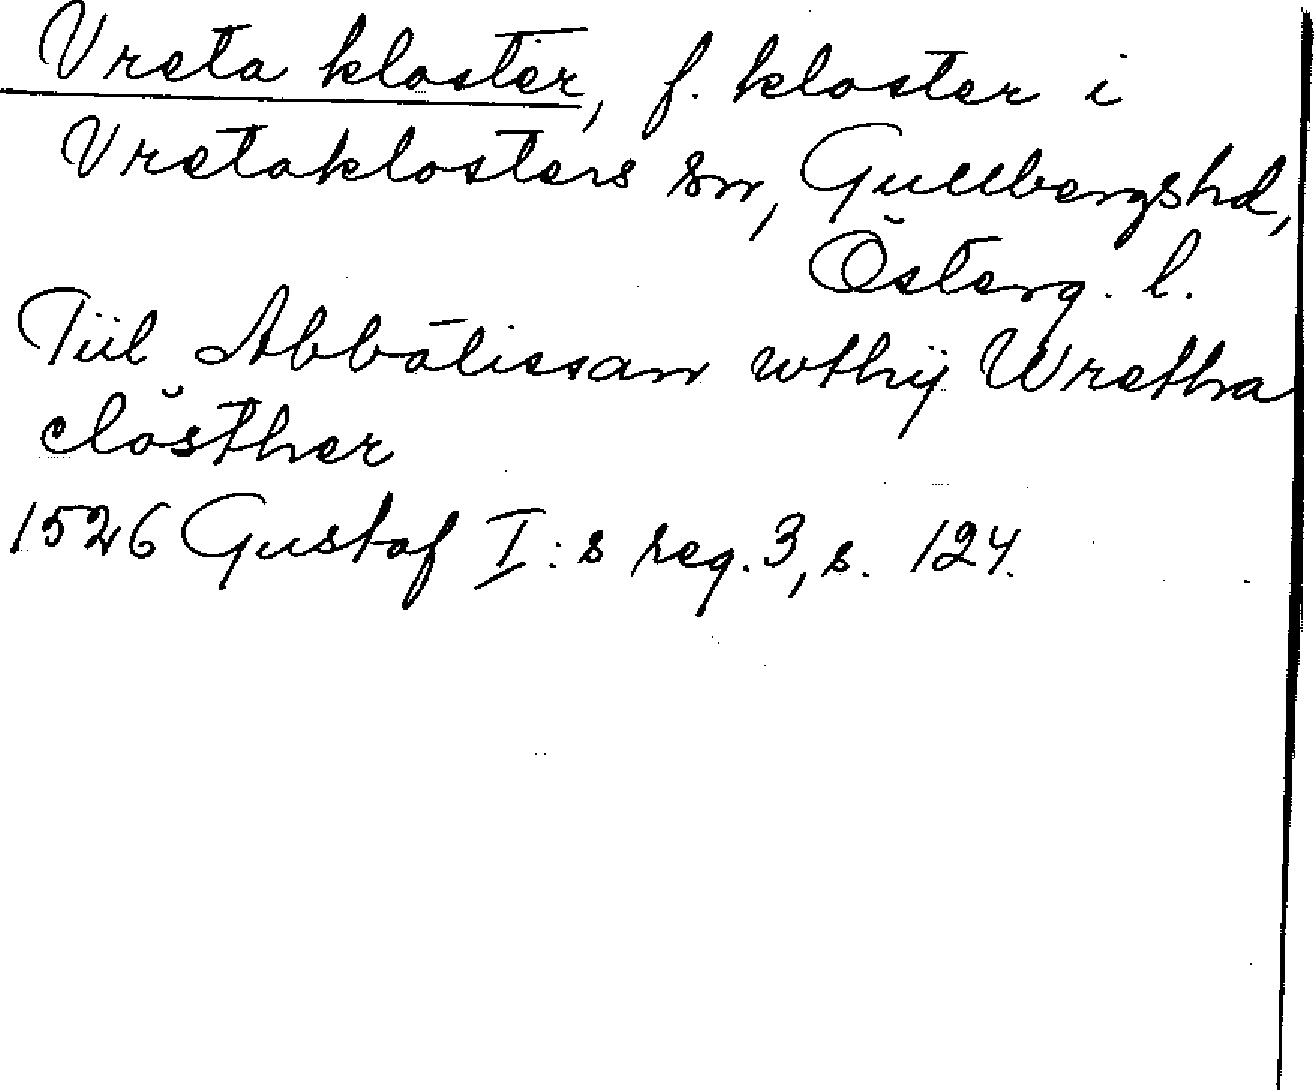 Vreta kloster, f. kloster i
Vretaklosters sn, Gullbergshd,
Österg. l.
Tiil Abbätissan wthij Wretha
clösther
1526 Gustaf I:s reg. 3, s. 124.